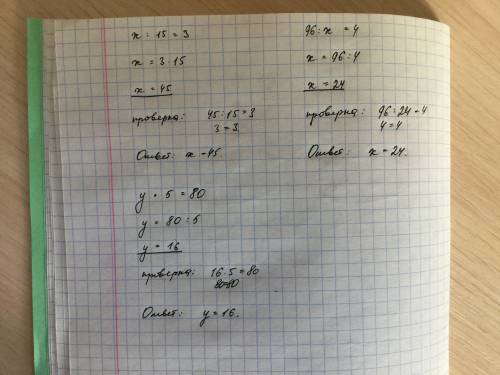 x : 15 = 3
x = 3 · 15
x = 45
проверка: 45 : 15 = 3
3 = 3
Ответ: x = 45.
96 : x = 4
x = 96 : 4
x = 24
проверка: 96 : 24 = 4
4 = 4
Ответ: x = 24.
y · 5 = 80
y = 80 : 5
y = 16
проверка: 16 · 5 = 80
80=80
Ответ: y = 16.